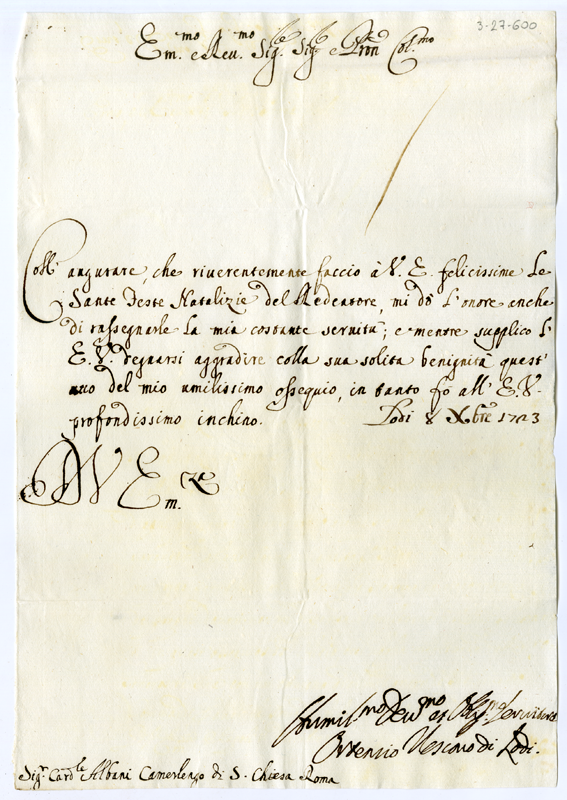 3-27-600
Em.mo e Reu.mo Sig.re Sig.re e Pron Col.mo
Coll' augurare, che riuerentemente faccio à V. E. felicissime le
Sante Feste Natalizie del Redentore, mi dò l'onore anche
di rassegnarle la mia costante seruitù; e mentre supplico l'
E. V. degnarsi aggradire colla sua solita benignità quest'
atto del mio umilissimo ossequio, in tanto fo all' E. V.
profondissimo inchino. Lodi 8 Xbre 1723
D V Em.za
Humil.mo Deu.mo et Obl.mo Seruitore
Ortensio Vescouo di Lodi.
Sig.r Card.le Albani Camerlengo di S. Chiesa Roma